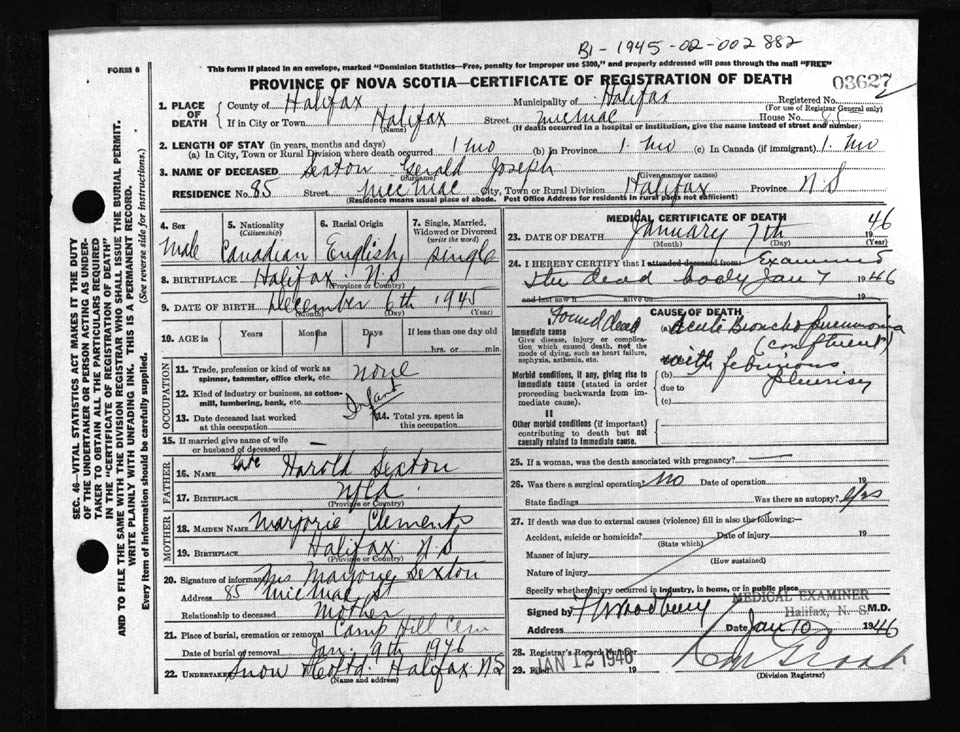 B1-1945-02-002882
FORM 6
This form if placed in an envelope, marked "Dominion Statistics—Free, penalty for improper use $300," and properly addressed will pass through the mail "FREE"
PROVINCE OF NOVA SCOTIA—CERTIFICATE OF REGISTRATION OF DEATH
03627
1. PLACE OF DEATH
County of Halifax Municipality of Halifax Registered No.
(For use of Registrar General only)
If in City or Town Halifax Street MicMac House No. 85
(Name) (If death occurred in a hospital or institution, give the name instead of street and number)
2. LENGTH OF STAY (in years, months and days)
(a) In City, Town or Rural Division where death occurred 1 mo (b) in Province 1. Mo (c) In Canada (if immigrant) 1. Mo
3. NAME OF DECEASED Sexton Gerald Joseph
(Surname) (Given name or names)
RESIDENCE No. 85 Street MicMac City, Town or Rural Division Halifax Province N S
(Residence means usual place of abode. Post Office Address for residents in rural parts not sufficient)
4. Sex
Male
5. Nationality (Citizenship)
Canadian
6. Racial Origin
English
7. Single, Married, Widowed or Divorced (write the word)
single
8. BIRTHPLACE Halifax N.S
(Province or Country)
9. DATE OF BIRTH December 6th 1945
(Month) (Day) (Year)
10. AGE in Years Months Days If less than one day old
hrs. or min.
OCCUPATION
11. Trade, profession or kind of work as spinner, teamster, office clerk, etc. none
12. Kind of industry or business, as cotton-mill, lumbering, bank, etc. Infant
13. Date deceased last worked at this occupation
14. Total yrs. spent in this occupation
15. If married give name of wife or husband of deceased —
FATHER
16. NAME Harold Sexton
17. BIRTHPLACE Nfld.
(Province or Country)
MOTHER
18. MAIDEN NAME Marjorie Clements
19. BIRTHPLACE Halifax N.S
(Province or Country)
20. Signature of informant Mrs Marjorie Sexton
Address 85 MicMac St
Relationship to deceased Mother
21. Place of burial, cremation or removal Camp Hill Cem
Date of burial or removal Jan. 9th 1946
22. UNDERTAKER Snow & Co Ltd. Halifax N S
(Name and address)
MEDICAL CERTIFICATE OF DEATH
23. DATE OF DEATH January 7th 1946
(Month) (Day) (Year)
24. I HEREBY CERTIFY that I attended deceased from Examined
the dead body Jan 7 1946
and last saw h alive on 19
CAUSE OF DEATH
Found dead
Immediate cause
Give disease, injury or complication which caused death, not the mode of dying, such as heart failure, asphyxia, asthenia, etc.
(a) Acute Broncho pneumonia
(confluent)
with
pleurisy
Morbid conditions, if any, giving rise to immediate cause (stated in order proceeding backwards from immediate cause).
(b)
due to
(c)
II
Other morbid conditions (if important) contributing to death but not causally related to immediate cause.
25. If a woman, was the death associated with pregnancy? —
26. Was there a surgical operation? No Date of operation 19
State findings Was there an autopsy? yes
27. If death was due to external causes (violence) fill in also the following:—
Accident, suicide or homicide? Date of injury 19
(State which)
Manner of injury
(How sustained)
Nature of injury
Specify whether injury occurred in industry, in home, or in public place
MEDICAL EXAMINER
Halifax, N. S.
Signed by Woodbury M.D.
Address Date Jan 10 1946
28. Registrar's Record Number
29. Filed JAN 12 1946 19
(Division Registrar)
SEC. 46—VITAL STATISTICS ACT MAKES IT THE DUTY OF THE UNDERTAKER OR PERSON ACTING AS UNDERTAKER TO OBTAIN ALL THE PARTICULARS REQUIRED IN THE "CERTIFICATE OF REGISTRATION OF DEATH" AND TO FILE THE SAME WITH THE DIVISION REGISTRAR WHO SHALL ISSUE THE BURIAL PERMIT.
WRITE PLAINLY WITH UNFADING INK. THIS IS A PERMANENT RECORD.
Every item of information should be carefully supplied. (See reverse side for instructions.)